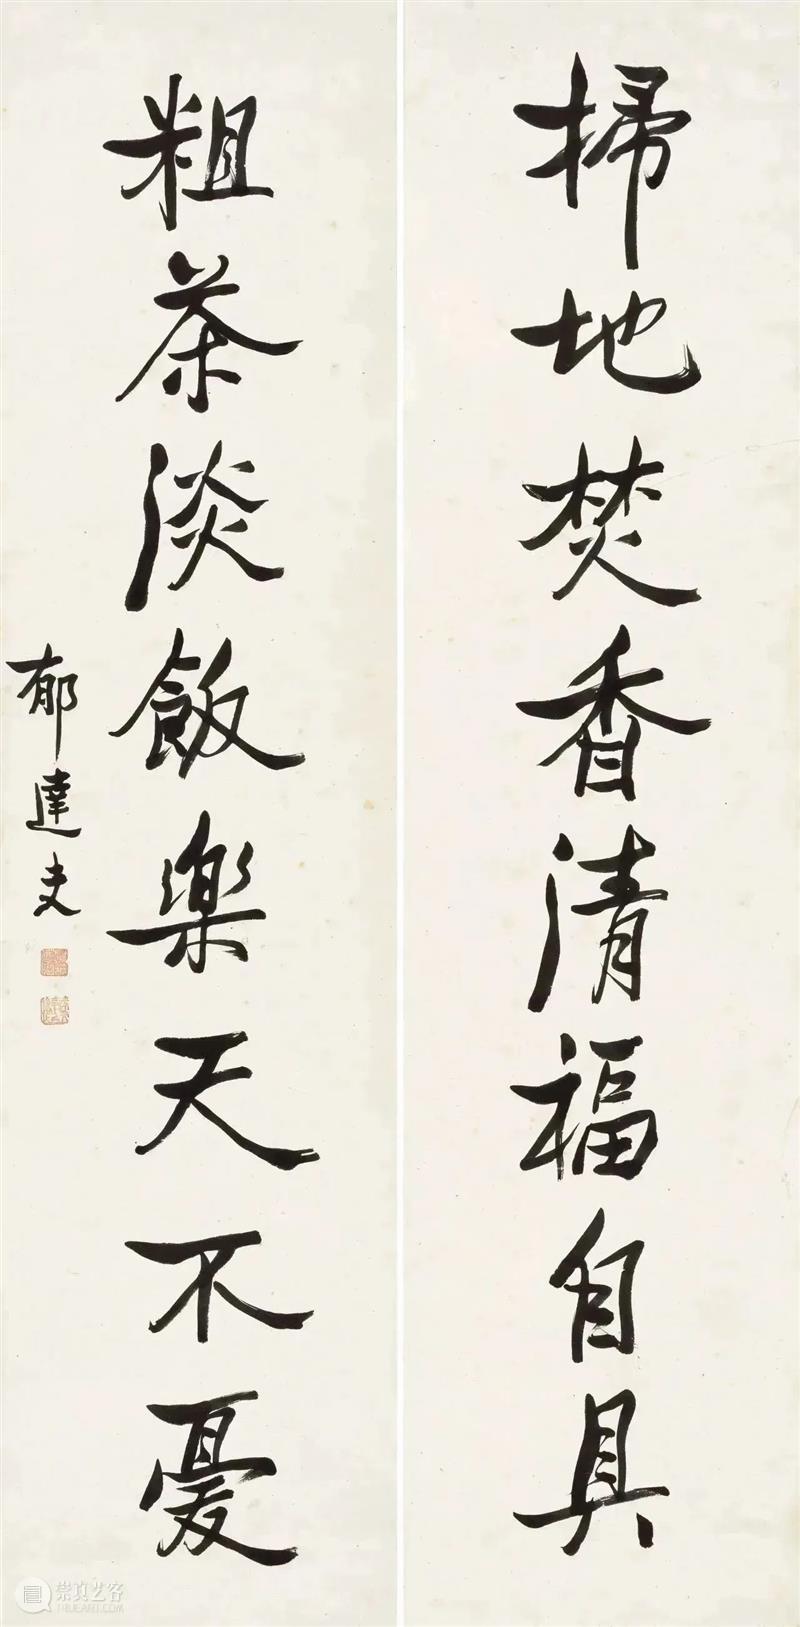 掃地焚香清福自具
粗茶淡飯樂天不憂
郁達夫
崇真艺客
TRUEART.COM